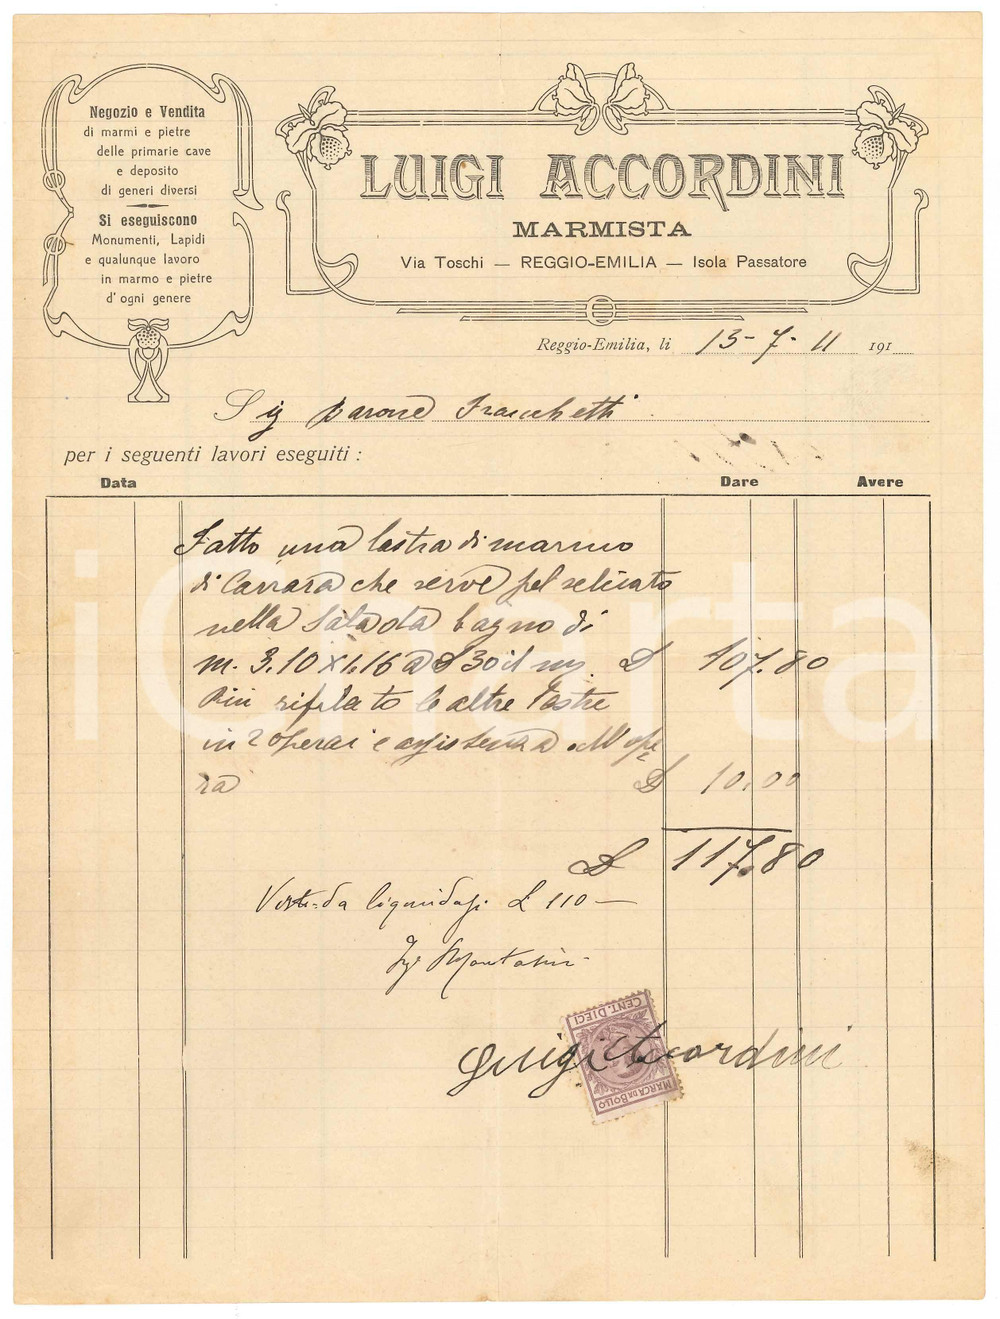 Negozio e Vendita
di marmi e pietre
delle primarie cave
e deposito
di generi diversi
Si eseguiscono
Monumenti, Lapidi
e qualunque lavoro
in marmo e pietre
d'ogni genere
LUIGI ACCORDINI
MARMISTA
Via Toschi — REGGIO-EMILIA — Isola Passatore
Reggio-Emilia, li 13-7-11 191
Sig Barone Franchetti
per i seguenti lavori eseguiti :
Data Dare Avere
Fatto una lastra di marmo
di Carrara che serve pel selicato
nella Sala da bagno di
m. 3.10 x 1.16 a £ 30 il mq. £ 107.80
Più rifilato le altre lastre
in 2 operai e assistenza all'ope
ra £ 10.00
£ 117.80
Visto: da liquidarsi £ 110 —
Ing.
CENT. DIECI
MARCA DA BOLLO
Luigi Accordini
iCharta